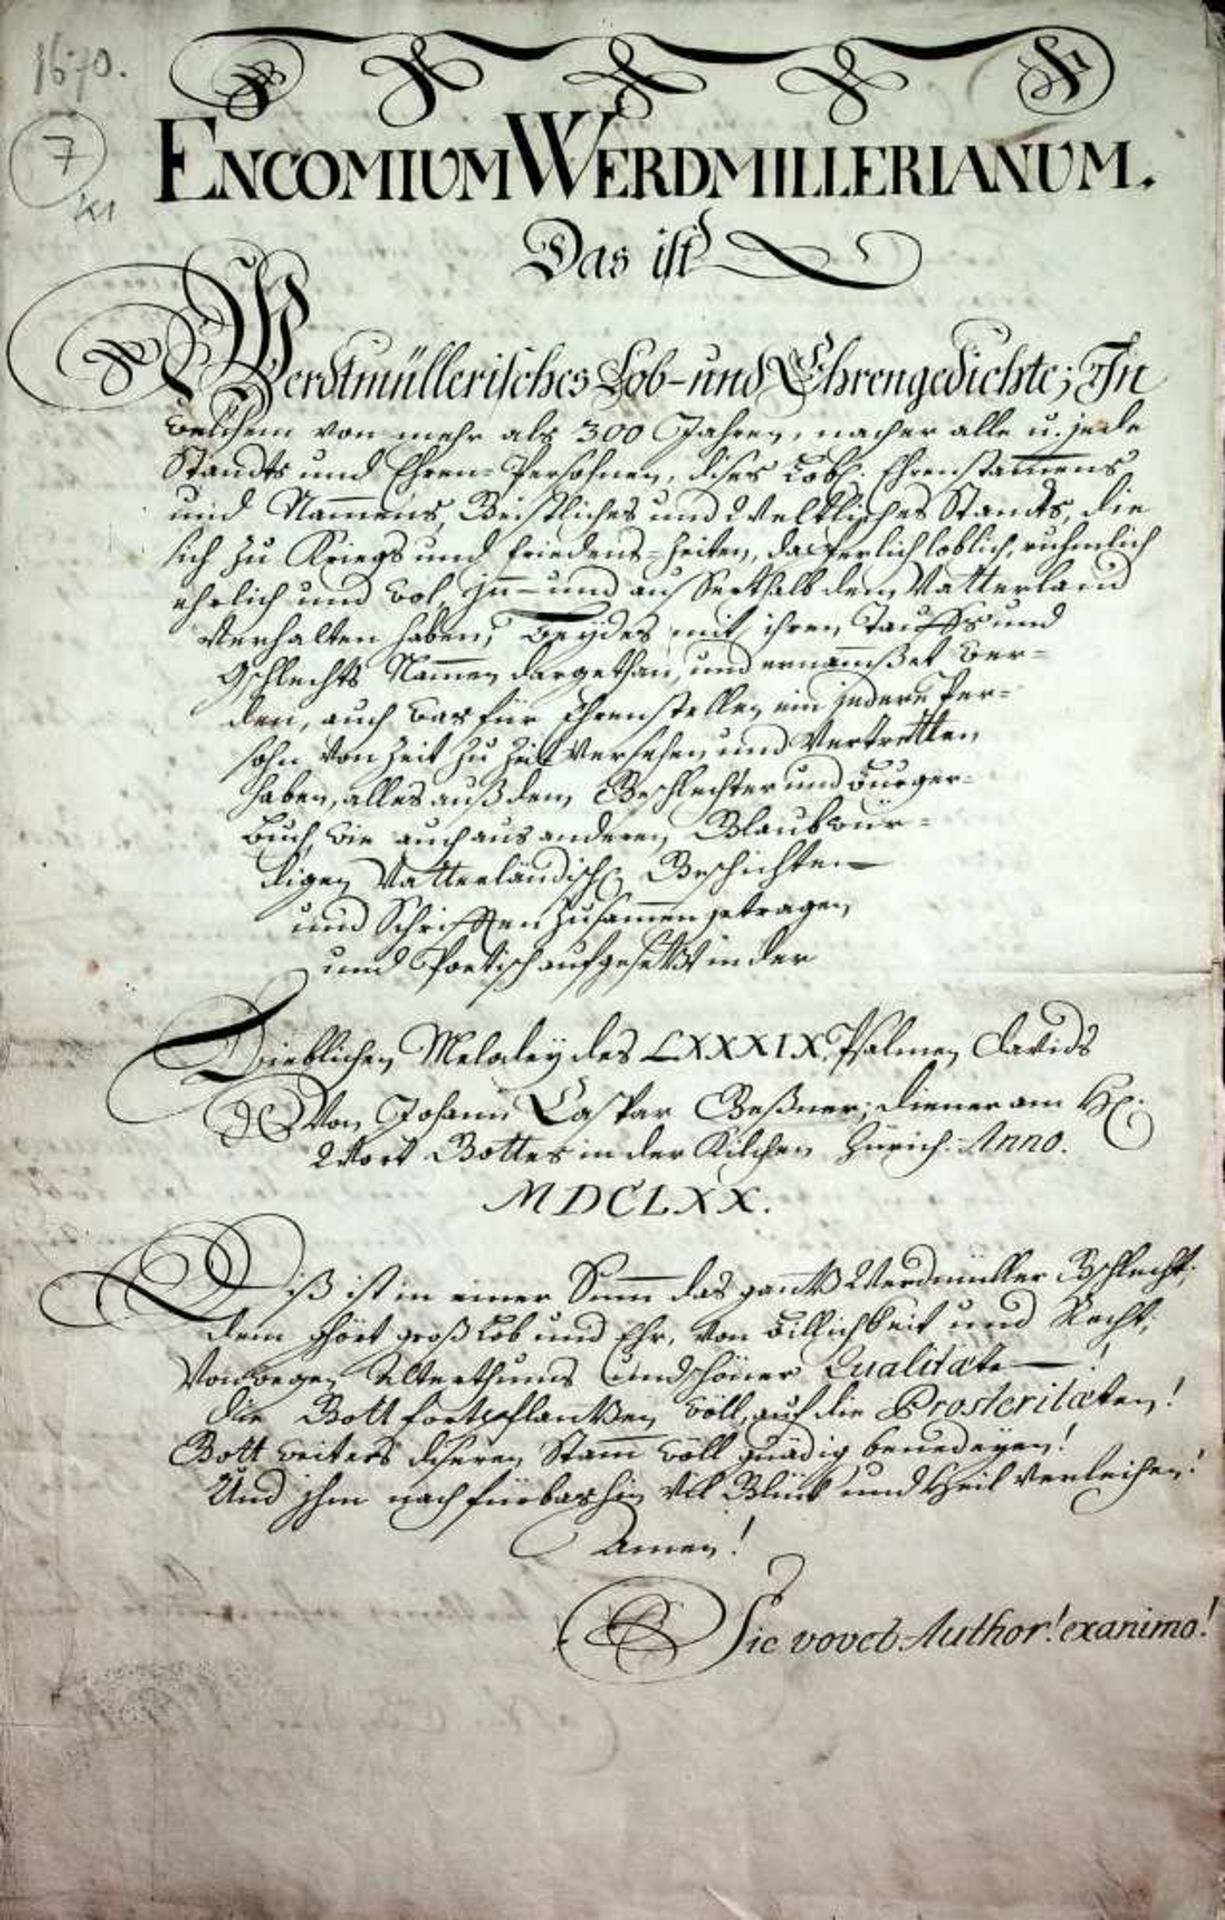 1670.
7
ENCOMIUM WERDMILLERIANUM.
Das ist
Werdtmüllerisches Lob- und Ehrengedichte; In
welchem von mehr als 300 Jahren, nacher alle u. jede
Standts und Ehren-Persohnen, dises Lobl. Ehrenstammens
und Nammens, Geistliches und Weltliches Standts, die
sich zu Kriegs und friedens-Zeiten, dapferlich loblich, ruhmlich
ehrlich und wol, jn- und ausserthalb dem Vatterland
verhalten haben; beydes mit ihren Tauffs und
Gschlechts Nammen dargethan, und ernammßet wer-
den, auch was für Ehrenstellen ein jedere Per-
sohn von Zeit zu Zeit versehen und Vertretten
haben, alles auß dem Geschlechter und Burger-
buch, wie auch aus anderen Glaubwür-
digen Vatterländischen Geschichten
und Schrifften zusammen getragen
und Poetisch aufgesetzt in der
Lieblichen Meloley des LXXXIX. Psalmen Davids
Von Johann Caspar Geßner; diener am H.
Wort Gottes in der Kilchen Zürich. Anno.
MDCLXX.
Diß ist in einer Summ das gantz Werdmüller Gschlecht;
dem ghört groß Lob und Ehr, von billichkeit und Recht;
Vonwegen Alterthums und schöner Qualitæte!
die Gott fortpflantzen wöll, auf die Prosteritæten!
Gott weiters diseren Stamm wöll gnädig benedeyen!
Und jhm nach fürbashin vil Glück und Heil verleihen!
Amen!
Sic vovet Author! ex animo!